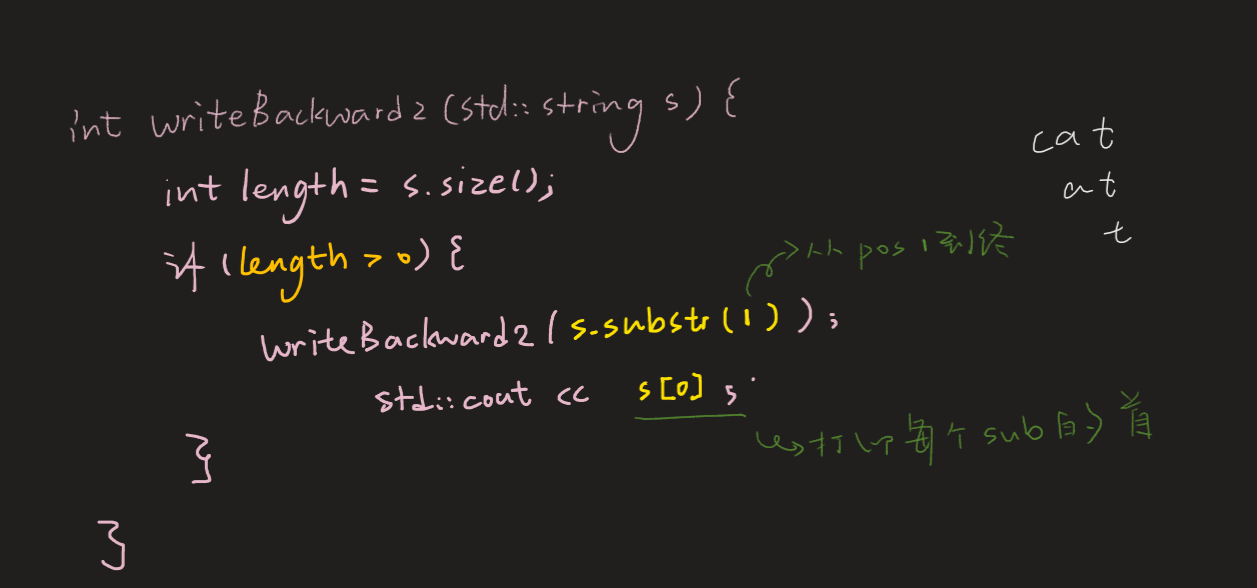 int writeBackward2 (std::string s) {
int length = s.size();
if (length > 0) {
writeBackward2 (s.substr(1));
std::cout << s[0];
}
}
cat
at
t
从 pos 1 到终
打印每个 sub 的首